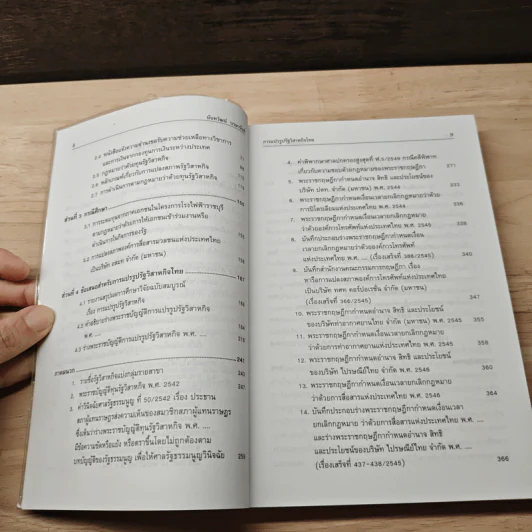 2.5 หนังสือแจ้งความจำนงขอรับความช่วยเหลือทางวิชาการ
และการเงินจากกองทุนการเงินระหว่างประเทศ
2.6 กฎหมายว่าด้วยทุนรัฐวิสาหกิจ
2.7 การดำเนินการตามกฎหมายว่าด้วยทุนรัฐวิสาหกิจ
ส่วนที่ 3 กรณีศึกษา
3.1 การระดมทุนจากเอกชนในโครงการรถไฟฟ้าราชบุรี
ดำเนินการในกิจการของรัฐ
เป็นบริษัท อสมท จำกัด (มหาชน)
ส่วนที่ 4 ข้อเสนอสำหรับการแปรรูปรัฐวิสาหกิจไทย
4.1 รายงานสรุปผลการศึกษาวิจัยฉบับสมบูรณ์
เรื่อง การแปรรูปรัฐวิสาหกิจ
4.2 คำอธิบายร่างพระราชบัญญัติการแปรรูปรัฐวิสาหกิจ
พ.ศ. ....
4.3 ร่างพระราชบัญญัติการแปรรูปรัฐวิสาหกิจ พ.ศ. ....
ภาคผนวก 241
1. รายชื่อรัฐวิสาหกิจแบ่งกลุ่มรายสาขา
2. พระราชบัญญัติทุนรัฐวิสาหกิจ พ.ศ. 2542
3. คำวินิจฉัยศาลรัฐธรรมนูญ ที่ 50/2542 เรื่อง ประธาน
สภาผู้แทนราษฎรส่งความเห็นของสมาชิกสภาผู้แทนราษฎร
ซึ่งเห็นว่าร่างพระราชบัญญัติทุนรัฐวิสาหกิจ พ.ศ. ....
มีข้อความขัดหรือแย้ง หรือตราขึ้นโดยไม่ถูกต้องตาม
บทบัญญัติของรัฐธรรมนูญ เพื่อให้ศาลรัฐธรรมนูญวินิจฉัย 259
การแปรรูปรัฐวิสาหกิจไทย
4. คำพิพากษาศาลปกครองสูงสุดที่ ฟ.5/2549 กรณีคดีพิพาท
เกี่ยวกับความชอบด้วยกฎหมายของพระราชกฤษฎีกา 271
5. พระราชกฤษฎีกากำหนดอำนาจ สิทธิ และประโยชน์ของ
บริษัท ปตท. จำกัด (มหาชน) พ.ศ. 2544
6. พระราชกฤษฎีกากำหนดเงื่อนเวลายกเลิกกฎหมายว่าด้วย
การปิโตรเลียมแห่งประเทศไทย พ.ศ. 2544
7. พระราชกฤษฎีกากำหนดเงื่อนเวลายกเลิกกฎหมาย
ว่าด้วยองค์การโทรศัพท์แห่งประเทศไทย พ.ศ. 2545
8. บันทึกประกอบร่างพระราชกฤษฎีกากำหนดเงื่อน
เวลายกเลิกกฎหมายว่าด้วยองค์การโทรศัพท์
แห่งประเทศไทย พ.ศ. .... (เรื่องเสร็จที่ 366/2545)
9. บันทึกสำนักงานคณะกรรมการกฤษฎีกา เรื่อง
หารือการแปลงสภาพองค์การโทรศัพท์แห่งประเทศไทย
เป็นบริษัท ทศท คอร์ปอเรชั่น จำกัด (มหาชน)
(เรื่องเสร็จที่ 368/2545) 347
10. พระราชกฤษฎีกากำหนดอำนาจ สิทธิ และประโยชน์
ของบริษัทท่าอากาศยานไทย จำกัด (มหาชน) พ.ศ. 2545 355
11. พระราชกฤษฎีกากำหนดเงื่อนเวลายกเลิกกฎหมาย
ว่าด้วยการท่าอากาศยานแห่งประเทศไทย พ.ศ. 2545 358
12. พระราชกฤษฎีกากำหนดอำนาจ สิทธิ และประโยชน์
ของบริษัท ไปรษณีย์ไทย จำกัด พ.ศ. 2546 360
13. พระราชกฤษฎีกากำหนดเงื่อนเวลายกเลิกกฎหมาย
ว่าด้วยการสื่อสารแห่งประเทศไทย พ.ศ. 2546 364
14. บันทึกประกอบร่างพระราชกฤษฎีกากำหนดเงื่อนเวลา
ยกเลิกกฎหมายว่าด้วยการสื่อสารแห่งประเทศไทย พ.ศ. ....
และร่างพระราชกฤษฎีกากำหนดอำนาจ สิทธิ
และประโยชน์ของบริษัท ไปรษณีย์ไทย จำกัด พ.ศ. ....
(เรื่องเสร็จที่ 437-438/2545) 366